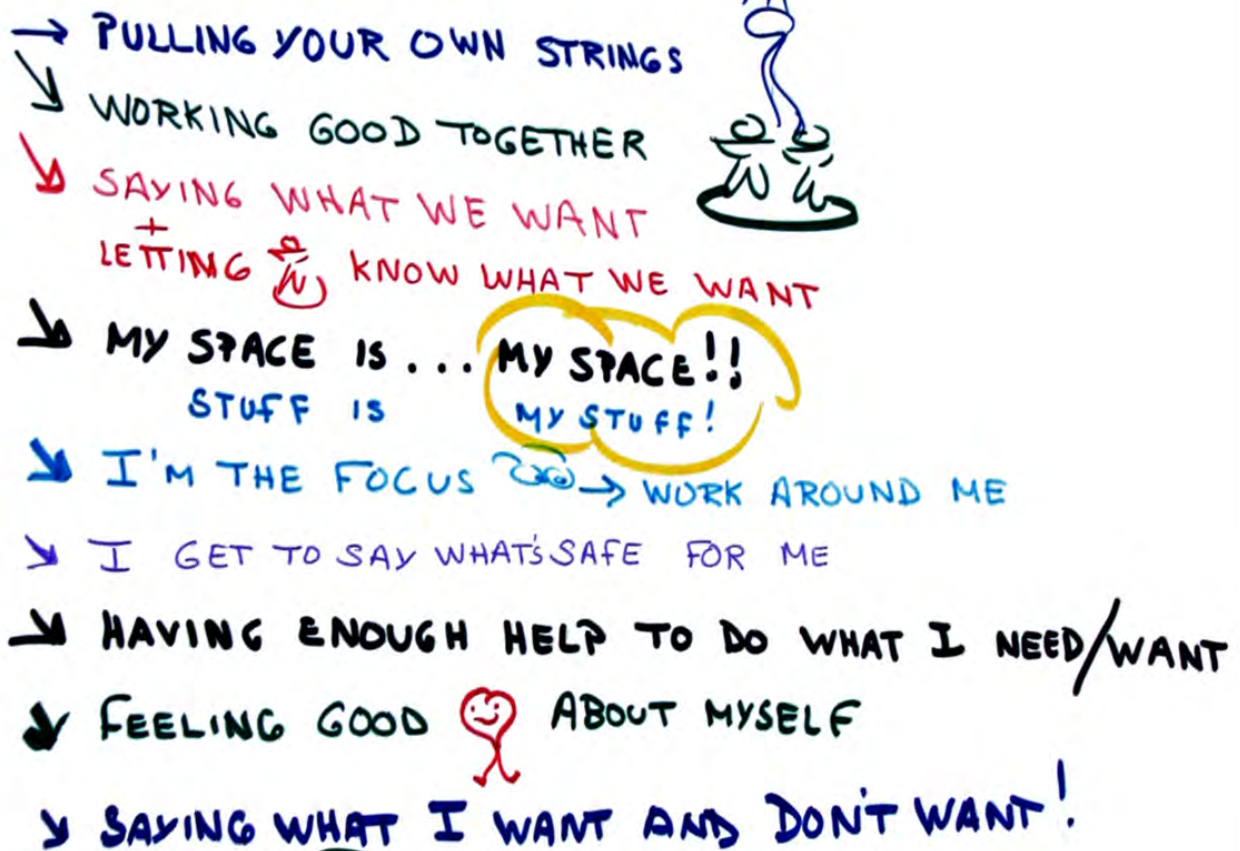 → PULLING YOUR OWN STRINGS
↘ WORKING GOOD TOGETHER
↘ SAYING WHAT WE WANT
+
LETTING KNOW WHAT WE WANT
↘ MY SPACE IS... MY SPACE!!
STUFF IS MY STUFF!
↘ I'M THE FOCUS → WORK AROUND ME
↘ I GET TO SAY WHAT'S SAFE FOR ME
↘ HAVING ENOUGH HELP TO DO WHAT I NEED/WANT
↘ FEELING GOOD ABOUT MYSELF
↘ SAYING WHAT I WANT AND DON'T WANT!